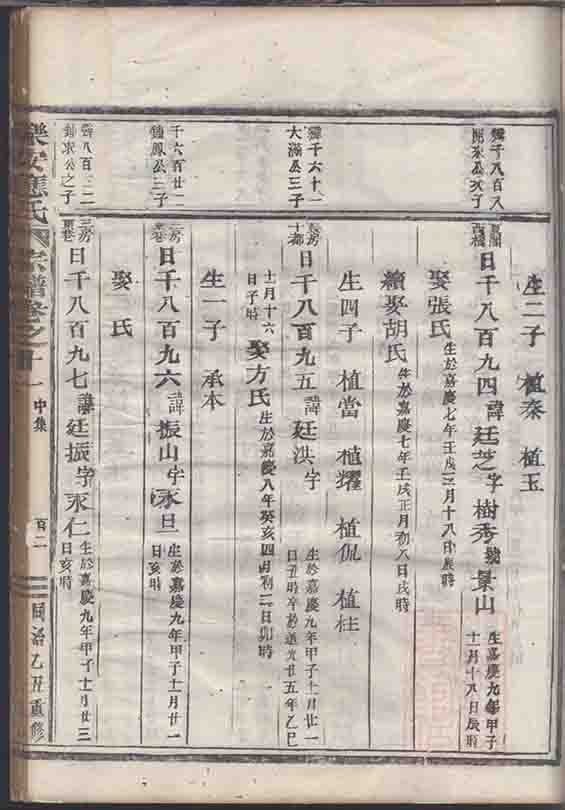 生二子 植秦 植玉
鑾千八百八
次子
西樓
日千八百九四諱廷芝字樹秀號景山
生嘉慶九年甲子
十一月十八日辰時
娶張氏
生於嘉慶七年壬戌三月十八日辰時
續娶胡氏
生於嘉慶七年壬戌正月初八日戌時
生四子 植當 植耀 植侃 植柱
鑾千六十一
大滿公三子
長房
十都
日千八百九五諱廷洪字
生於嘉慶九年甲子十一月廿一
日丑時卒於道光廿五年乙巳
十一月十六
日子時
娶方氏
生於嘉慶八年癸亥四月初二日卯時
生一子 承本
千六百廿二
鍾鳳公三子
房
東巷
日千八百九六諱振山字永旦
生於嘉慶九年甲子十一月廿一
日亥時
娶 氏
八百二二
求公之子
三房
東巷
日千八百九七諱廷振字永仁
生於嘉慶九年甲子十一月廿三
日亥時
樂安應氏宗譜卷之十一
中集
百二
同治乙丑重修